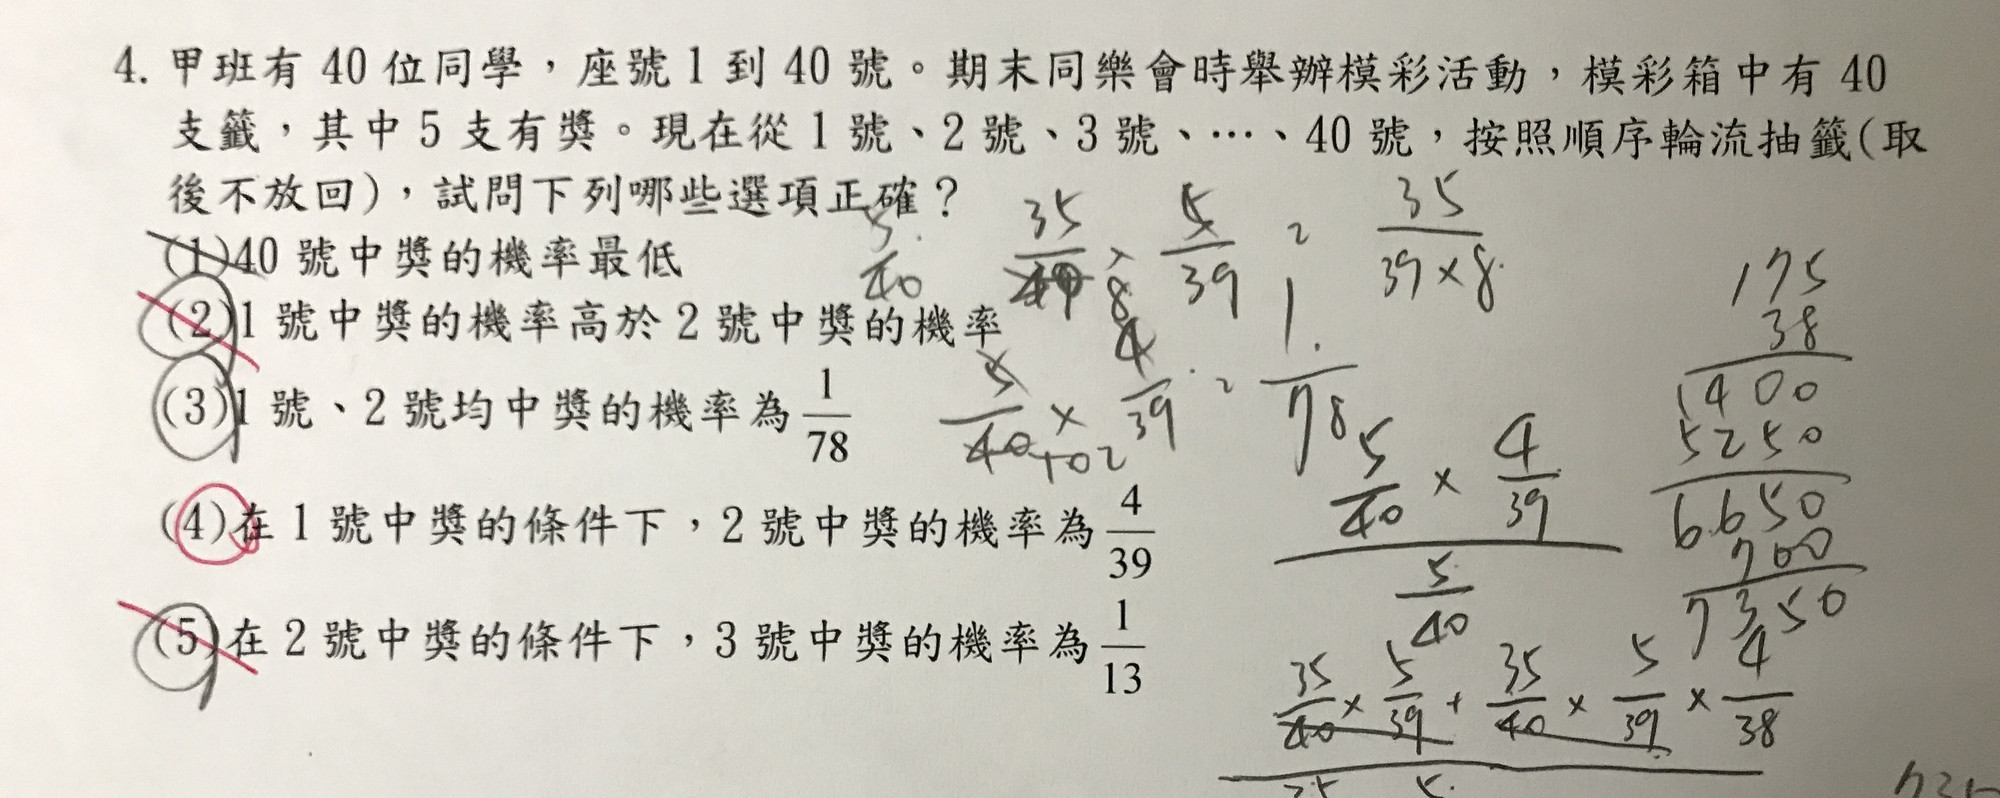 4. 甲班有 40 位同學，座號 1 到 40 號。期末同樂會時舉辦模彩活動，模彩箱中有 40
支籤，其中 5 支有獎。現在從 1 號、2 號、3 號、…、40 號，按照順序輪流抽籤(取
後不放回)，試問下列哪些選項正確？
(1)40 號中獎的機率最低
(2)1 號中獎的機率高於 2 號中獎的機率
(3)1 號、2 號均中獎的機率為 1/78
(4)在 1 號中獎的條件下，2 號中獎的機率為 4/39
(5)在 2 號中獎的條件下，3 號中獎的機率為 1/13
5/40
35/40 × 5/39 = 35/(39×8)
5/40 × 4/39 = 1/78
5/40 × 4/39
5/40
35/40 × 5/39 + 35/40 × 5/39 × 4/38
175
38
1400
5250
6650
700
7350